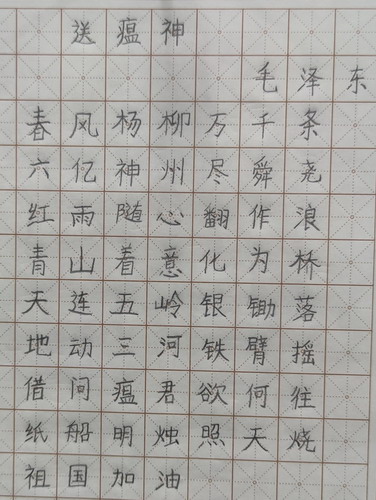 送瘟神
毛泽东
春风杨柳万千条
六亿神州尽舜尧
红雨随心翻作浪
青山着意化为桥
天连五岭银锄落
地动三河铁臂摇
借问瘟君欲何往
纸船明烛照天烧
祖国加油